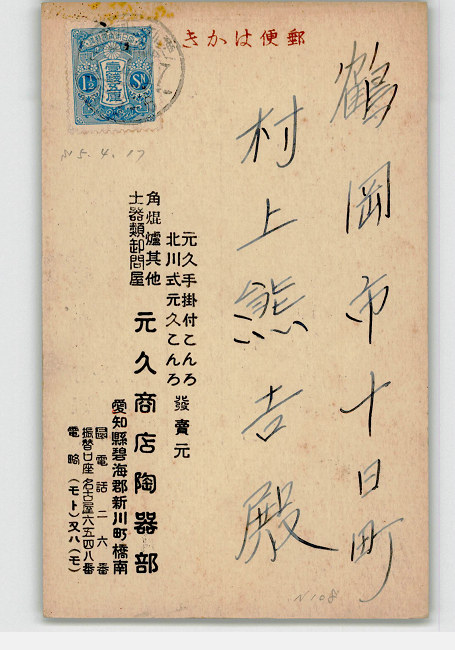 郵便はかき
鶴岡市十日町
村上熊吉殿
元久手掛付こんろ
北川式元久こんろ
發賣元
角焜爐其他
土器類卸問屋
元久商店陶器部
愛知縣碧海郡新川町橋南
電話二六番
振替口座名古屋六五四八番
電略(モト)又ハ(モ)
1½ Sn
N5.4.17
N108